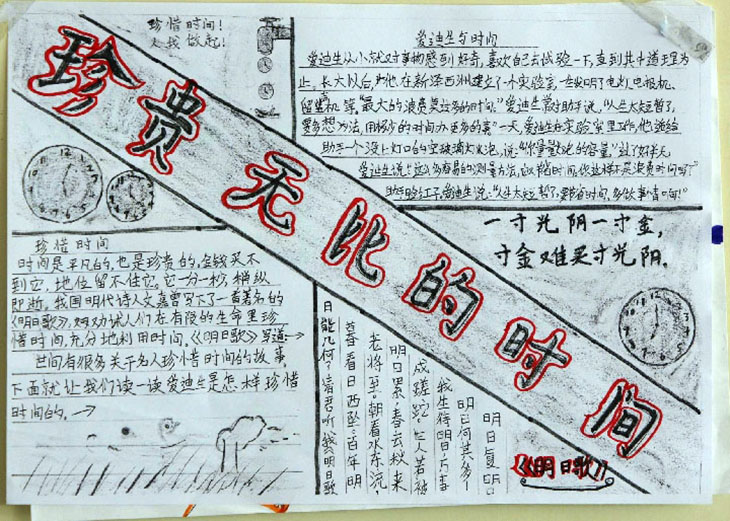 珍惜时间!
从我做起!
珍贵无比的时间
爱迪生与时间
爱迪生从小就对事物感到好奇,喜欢自己去试验一下,直到其中道理为
止。长大以后,他在新泽西州建立了一个实验室,一生发明了电灯、电报机、
留声机等,"最大的浪费莫过多的时间。"爱迪生常对助手说,"人生太短暂了,
要多想办法,用极少的时间办更多的事"一天,爱迪生在实验室里工作,他递给
助手一个没上灯口的空玻璃灯泡,说:"你量量灯泡的容量,"过了好半天
爱迪生说:"这么容易的测量方法,
助手脸红了,爱迪生说:"人生太短暂了,要节省时间,多做事情啊!"
一寸光阴一寸金,
寸金难买寸光阴.
珍惜时间
时间是平凡的,也是珍贵的,金钱买不
到它,地位留不住它。它一分一秒,稍纵
即逝。我国明代诗人文嘉曾写下了一首著名的
《明日歌》,劝试人们在有限的生命里珍
惜时间,充分地利用时间,《明日歌》写道→
世间有很多关于名人珍惜时间的故事,
下面就让我们读一读爱迪生是怎样珍惜
时间的。→
《明日歌》
明日复明日
明日何其多
我生待明日万事
成蹉跎,世人若被
明日累,春去秋来
老将至。朝看水东流,
暮看日西坠,百年明
日能几何?请君听我明日歌